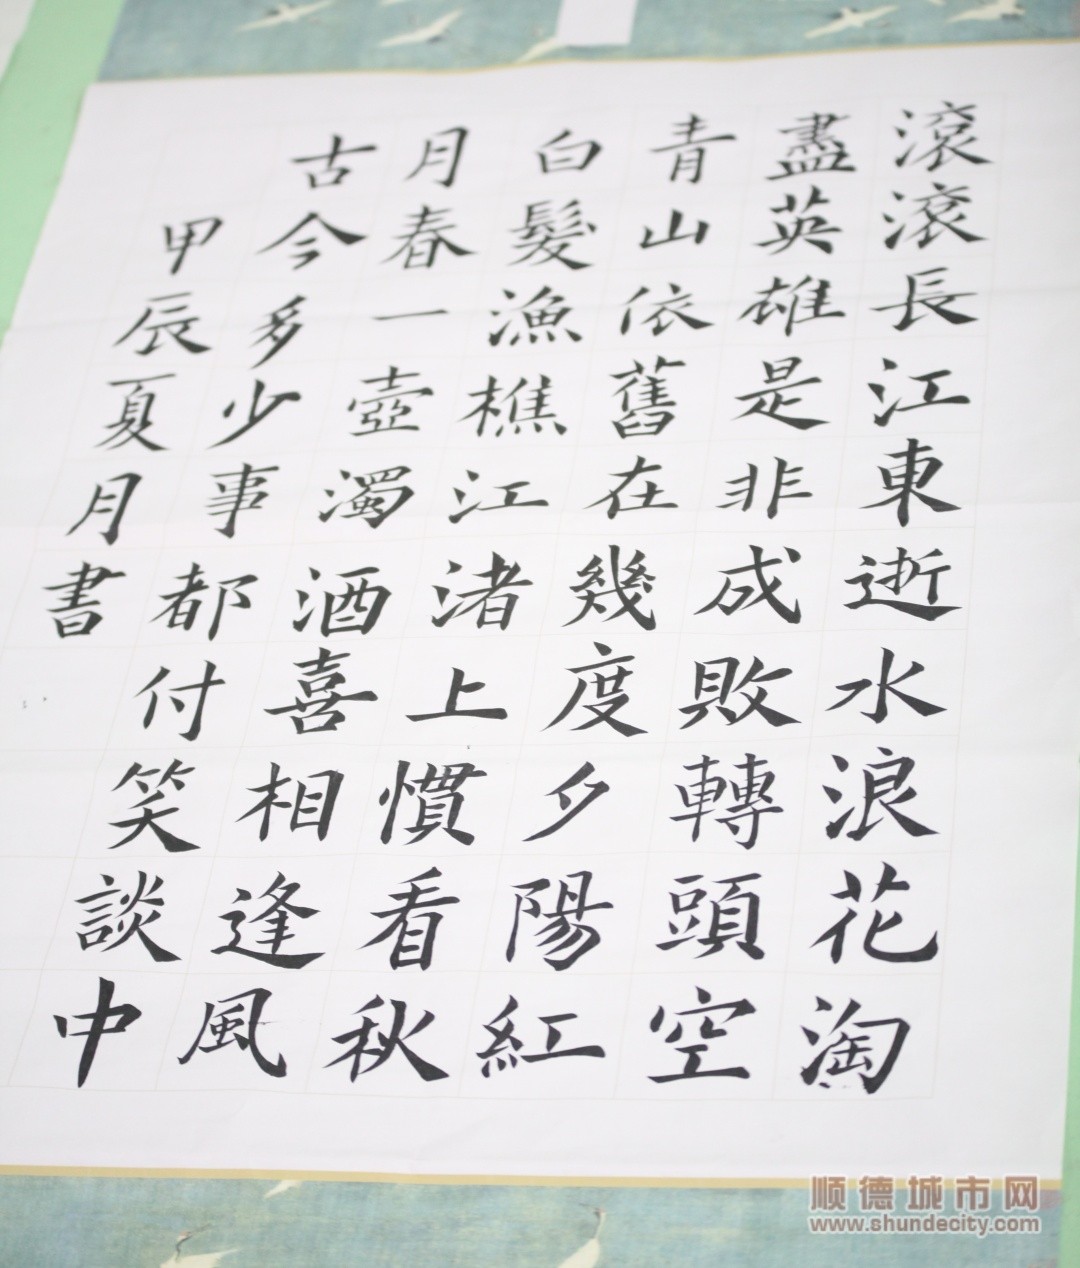 滾滾長江東逝水浪花淘
盡英雄是非成敗轉頭空
青山依舊在幾度夕陽紅
白髮漁樵江渚上慣看秋
月春一壺濁酒喜相逢風
古今多少事都付笑談中
甲辰夏月書
顺德城市网
www.shundecity.com